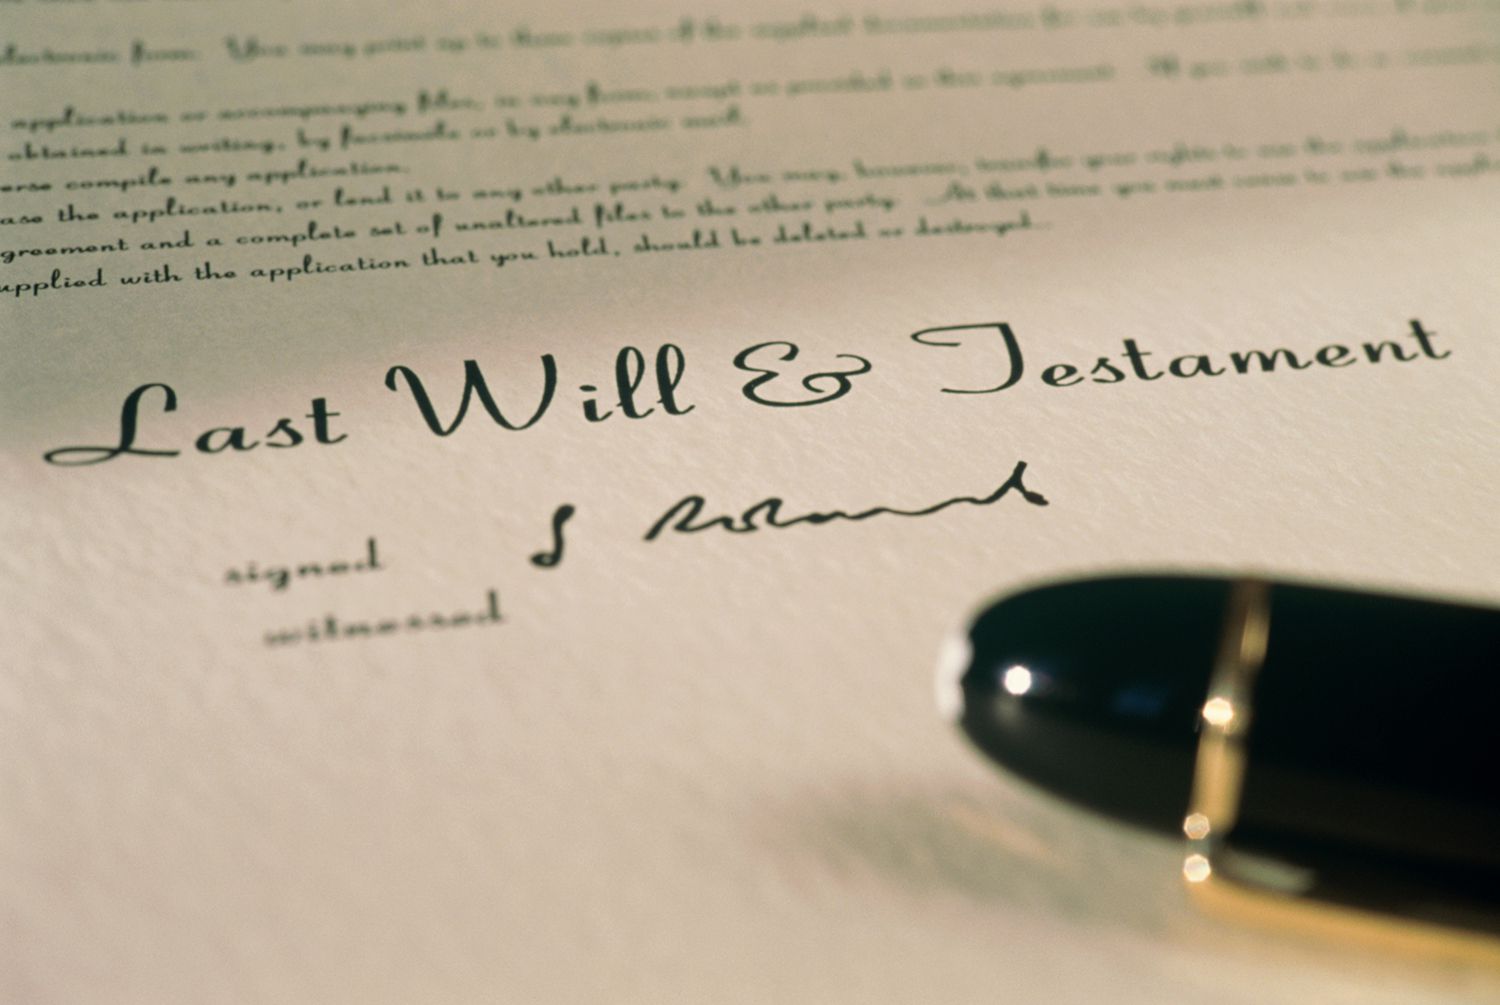 electronic form. You may print up to three copies of the supplied documentation for
application or accompanying files, in any form, except as provided in this agreement. If you wish to
obtained in writing, by facsimile or by electronic mail.
erse compile any application.
ase the application, or lend it to any other party. You may, however, transfer your rights to use the application
greement and a complete set of unaltered files to the other party. At that time you must cease to use the
upplied with the application that you hold, should be deleted or destroyed...
Last Will & Testament
signed
witnessed